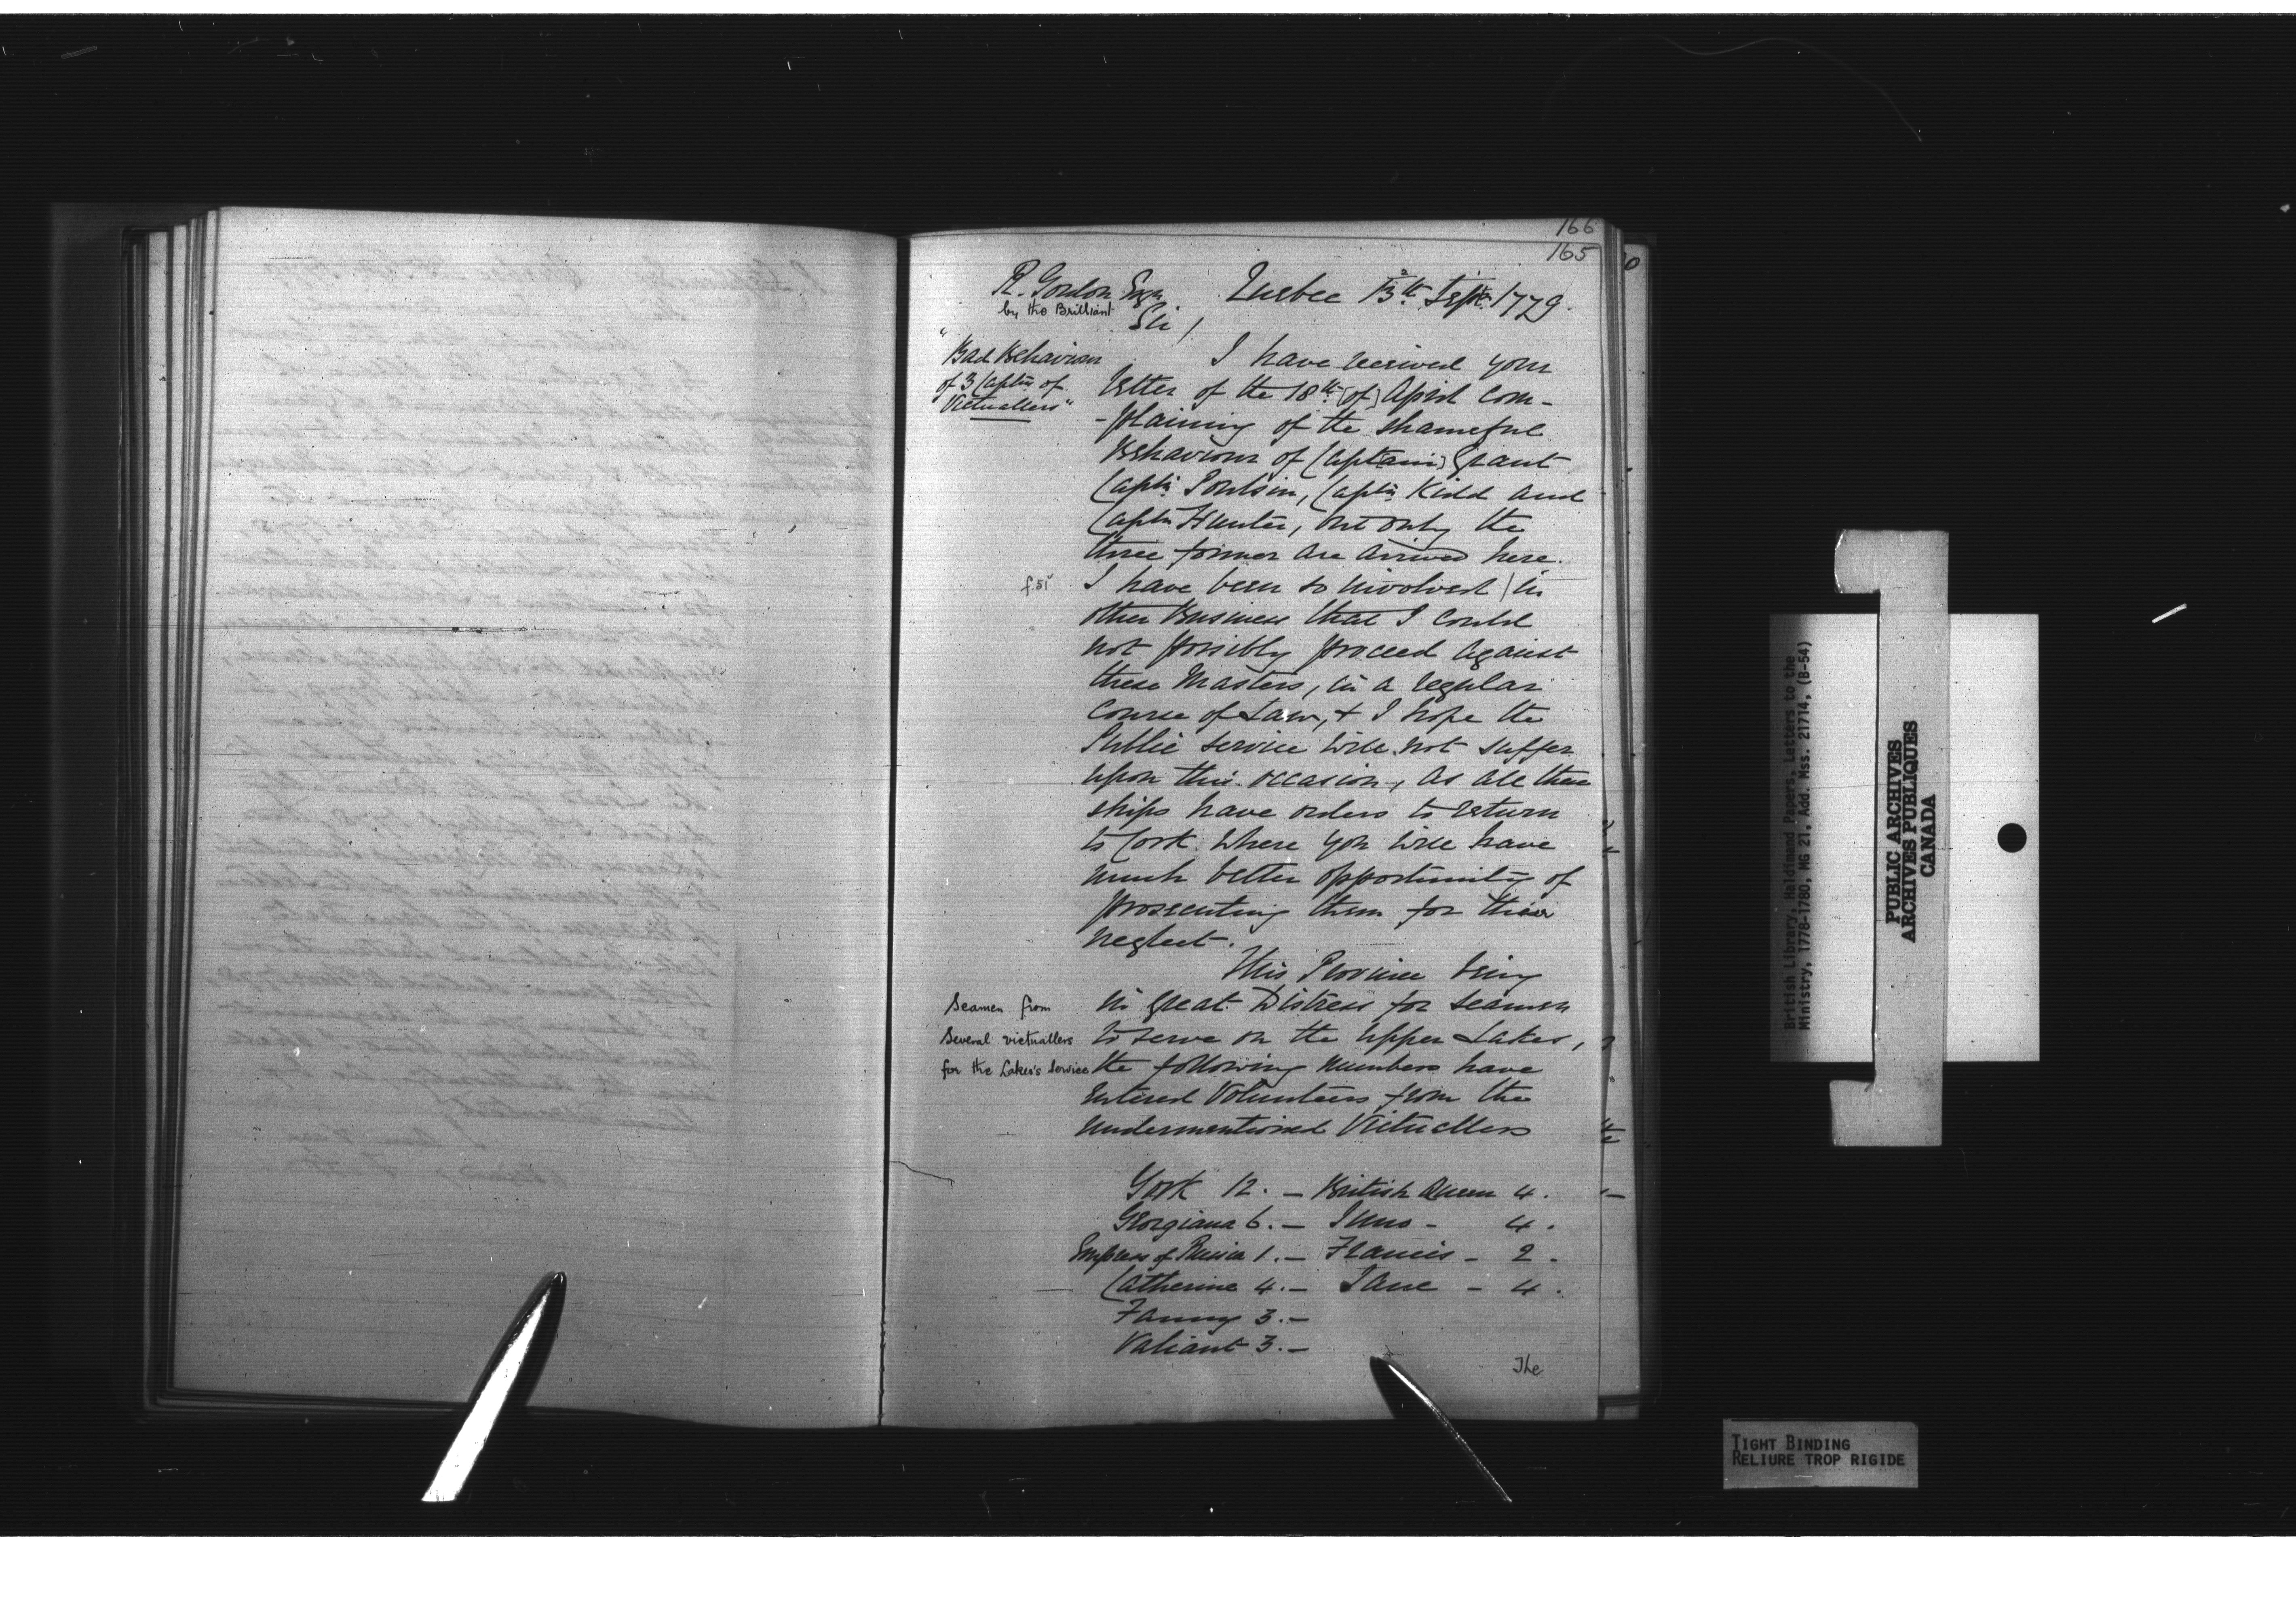 166
165
R. Gordon Esqr Quebec 13th Septr 1779.
by the Brilliant
Sir,
"Bad Behaviour
of 3 Captns of
Victuallers"
I have received your
letter of the 18th [of] April com-
-plaining of the shameful
Behaviour of Captain] Grant
Captn Poulsin, Captn Kidd and
Captn Hunter, but only the
three former are arrived here.
f.51v
I have been so involved | in
other Business that I could
not possibly proceed against
these Masters, in a regular
Course of Law, & I hope the
Public service will not suffer
upon this occasion, as all these
ships have orders to return
to Cork where you will have
much better opportunity of
prosecuting them for their
neglect.
This Province being
Seamen from
several victuallers
for the Lakes's service
in great Distress for seamen
to serve on the upper Lakes,
the following numbers have
Entered Volunteers from the
undermentioned Victuallers
York 12. – British Queen 4.
Georgiana 6. – Juno – 4.
Empress of Russia 1. – Francis – 2.
Catherine 4. – Jane – 4.
Fanny 3. –
Valiant 3. –
The
British Library, Haldimand Papers, Letters to the
Ministry, 1778-1780, MG 21, Add. Mss. 21714, (B-54)
PUBLIC ARCHIVES
ARCHIVES PUBLIQUES
CANADA
TIGHT BINDING
RELIURE TROP RIGIDE